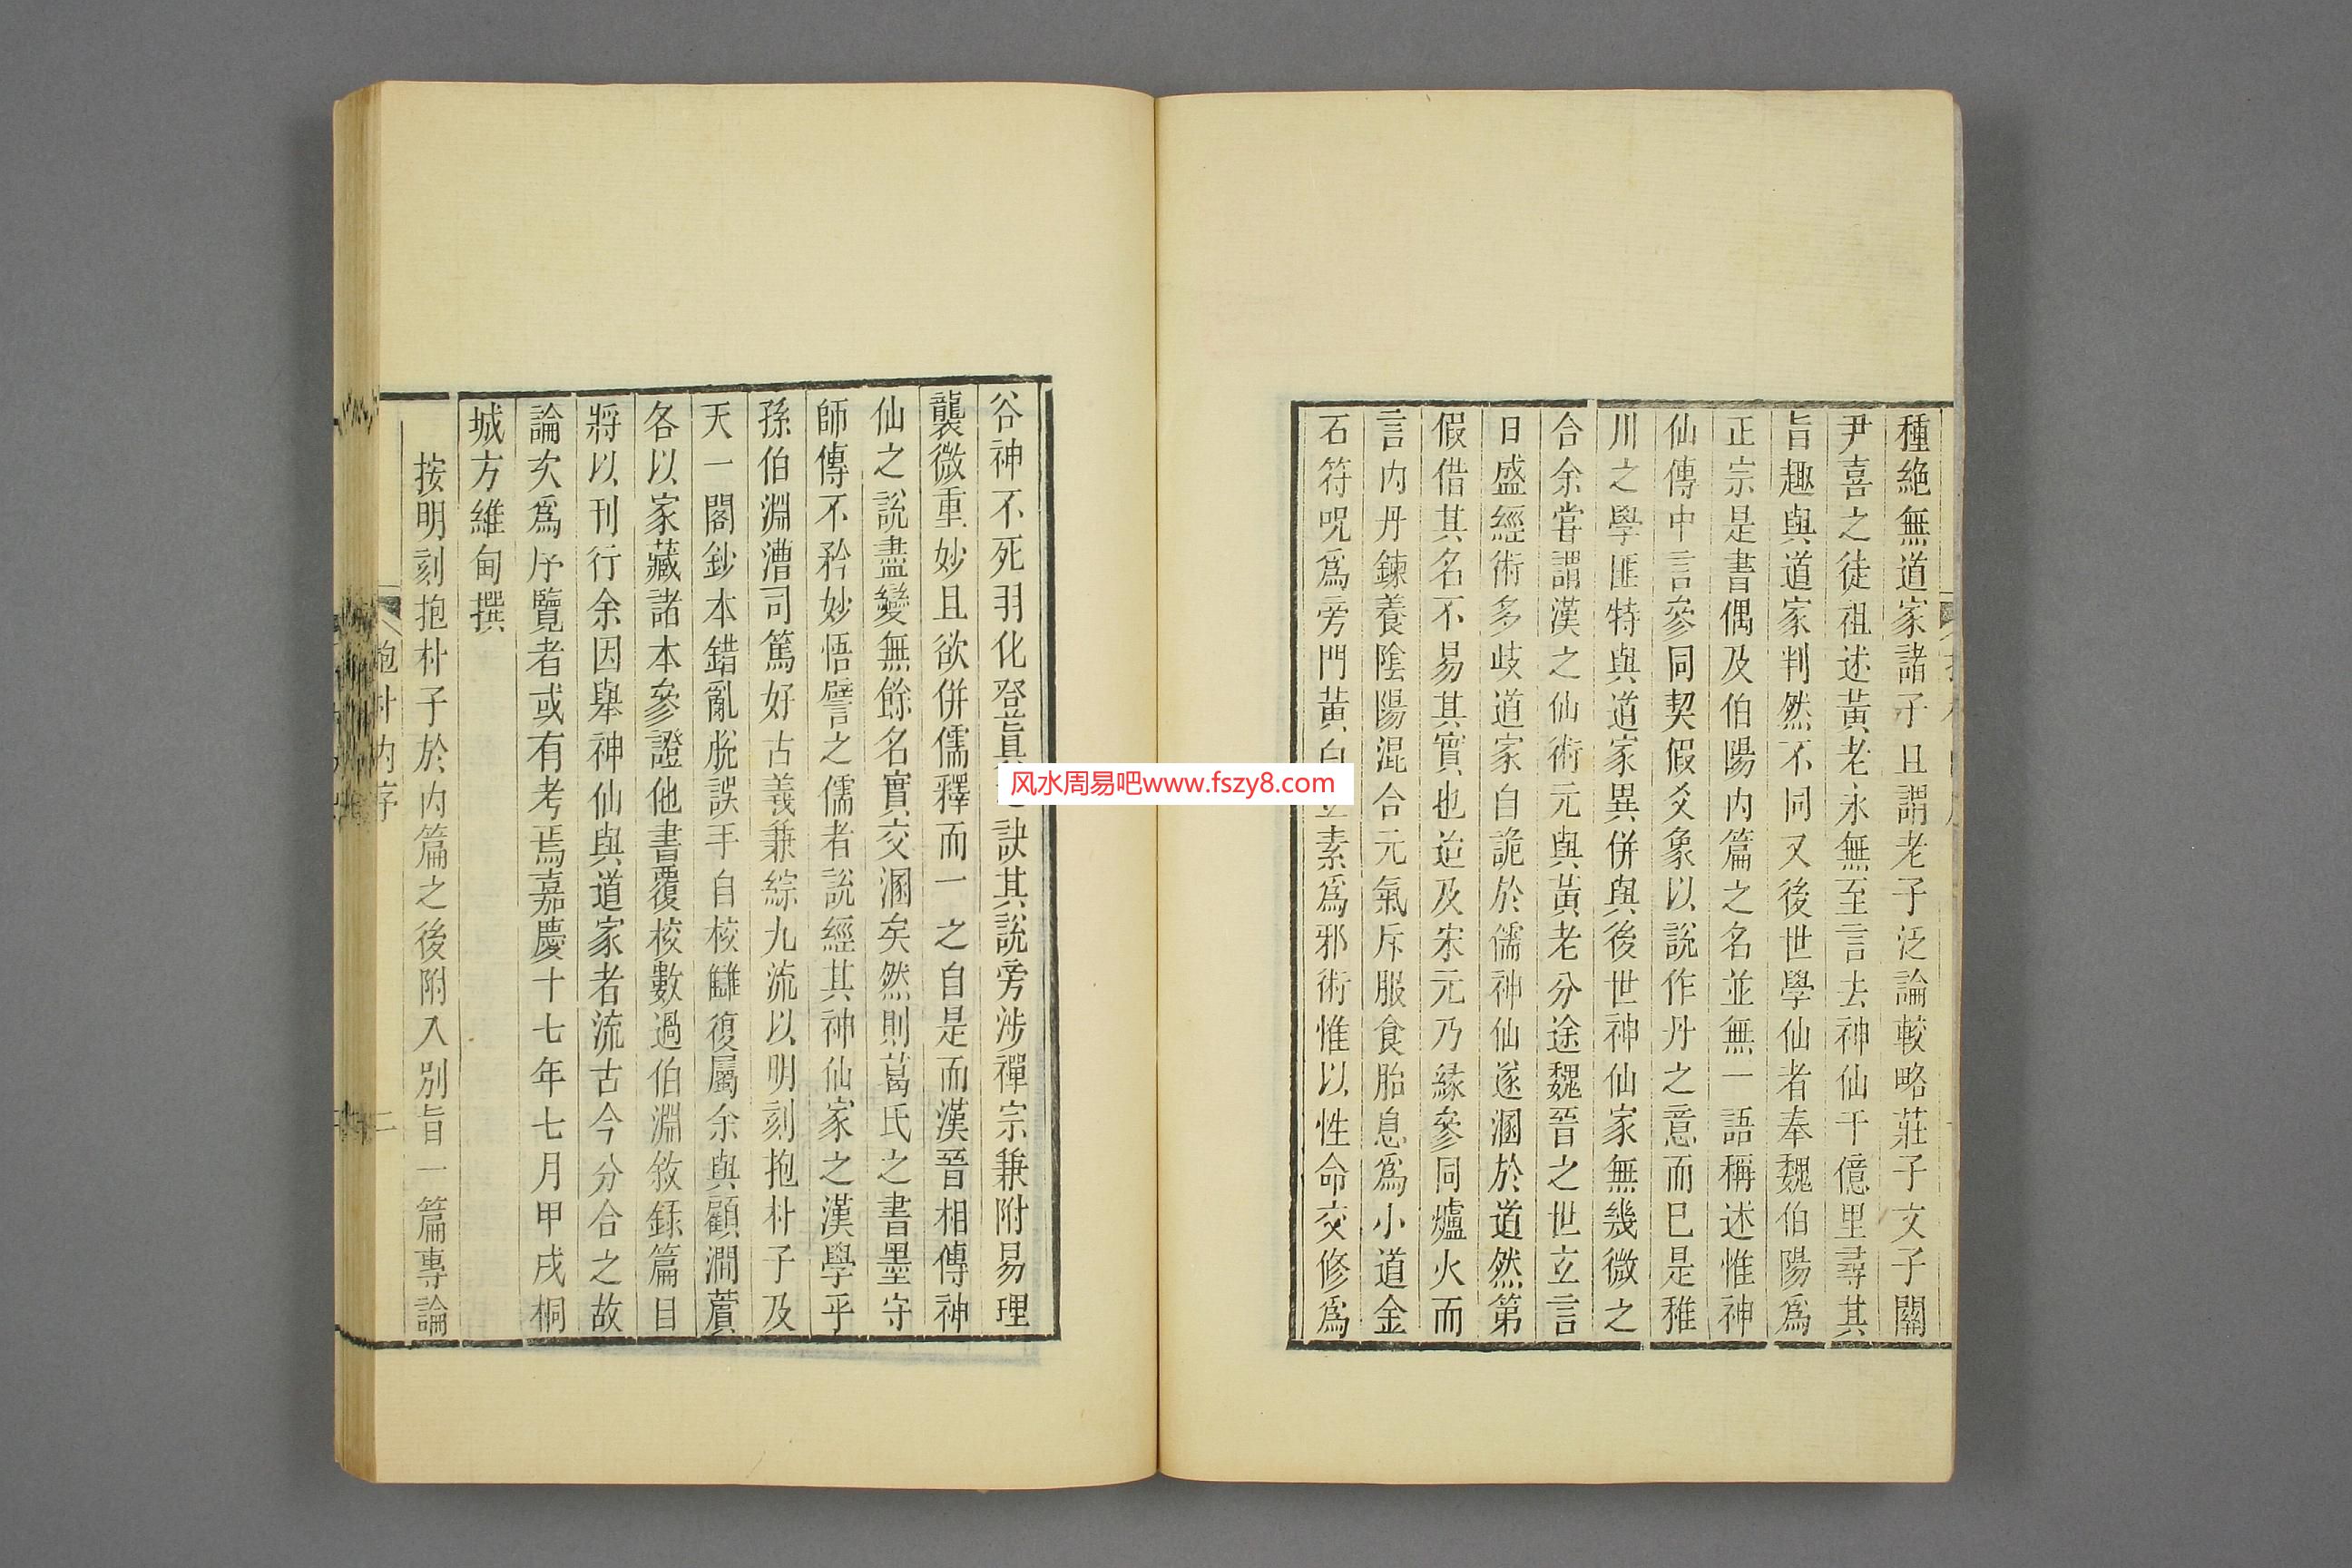 種絶無道家諸子且謂老子泛論較略莊子文子關
尹喜之徒祖述黃老永無至言去神仙千億里尋其
旨趣與道家判然不同又後世學仙者奉魏伯陽爲
正宗是書偶及伯陽内篇之名並無一語稱述惟神
仙傳中言參同契假爻象以說作丹之意而已是稚
川之學匪特與道家異併與後世神仙家無幾微之
合余嘗謂漢之仙術元與黃老分途魏晉之世玄言
日盛經術多歧道家自詭於儒神仙遂溷於道然第
假借其名不易其實也迨及宋元乃緣參同爐火而
言内丹鍊養陰陽混合元氣斥服食胎息爲小道金
石符呪爲旁門黃白素爲邪術惟以性命交修爲
谷神不死羽化登眞訣其說旁涉禪宗兼附易理
襲微重妙且欲併儒釋而一之自是而漢晉相傳神
仙之說盡變無餘名實交溷矣然則葛氏之書墨守
師傳不矜妙悟譬之儒者說經其神仙家之漢學乎
孫伯淵漕司篤好古義兼綜九流以明刻抱朴子及
天一閣鈔本錯亂脫誤手自校讎復屬余與顧澗薲
各以家藏諸本參證他書覆校數過伯淵敘錄篇目
將以刊行余因舉神仙與道家者流古今分合之故
論次爲序覽者或有考焉嘉慶十七年七月甲戌桐
城方維甸撰
按明刻抱朴子於内篇之後附入別旨一篇專論
抱朴内序
二
风水周易吧www.fszy8.com